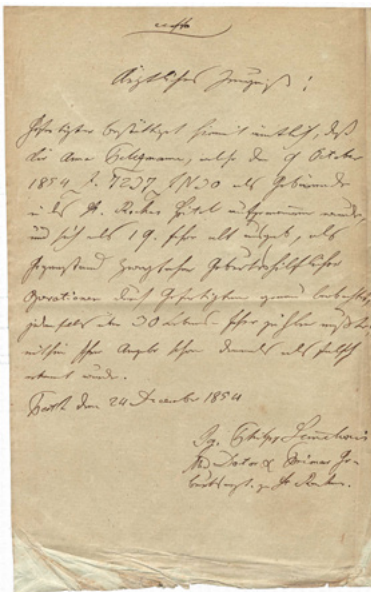 Ärztliches Zeugniß!
Gefertigter bestättiget hiemit amtlich, daß
die Anna, welche den 9 October
1854 als Gebärende
in das St. Roches Spital aufgenommen wurde,
und sich als 19. Jahre alt angab, als
Gegenstand geburtshilflicher
Operationen durch Gefertigten genau beobachtet,
jedenfalls über 30 Lebens-Jahre zählen mußte,
mithin ihre Angabe schon damals als falsch
erkannt wurde.
Pesth den 24 December 1854
Ig. Philipp Semmelweis
Med Doctor & Primar Ge-
burtsarzt zu St Rochus.